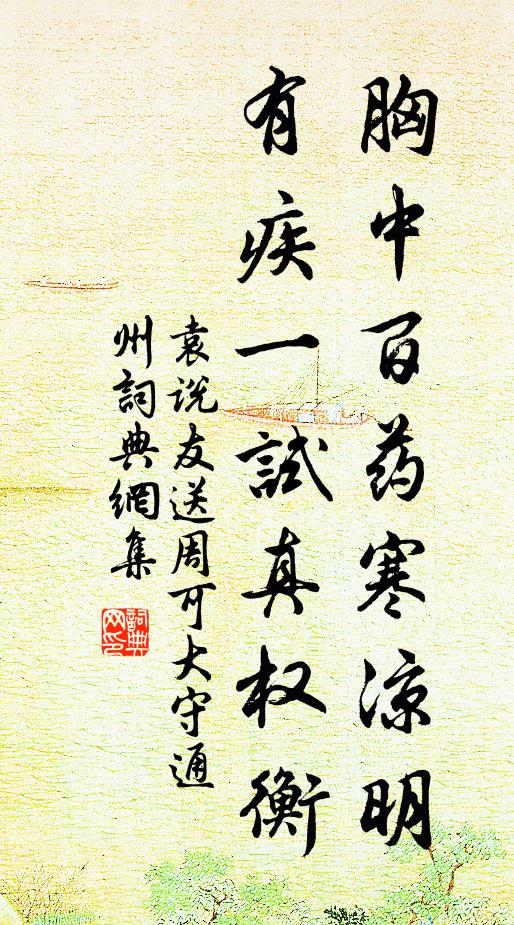 胸中百药寒凉明
有疾一試真权衡
袁说友送周可大守通
州詞典網集
詞典
网印